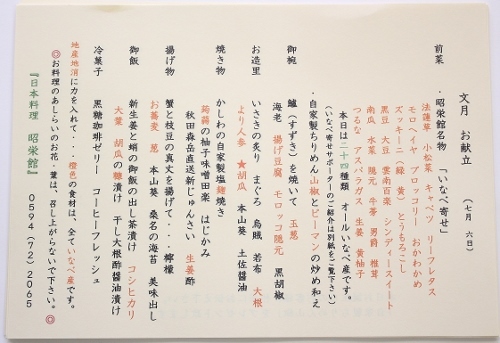 文月　お献立　（七月　六日）
前菜　・昭栄館名物　「いなべ寄せ」
法蓮草　小松菜　キャベツ　リーフレタス
モロヘイヤ　ブロッコリー　おかわかめ
ズッキーニ（緑　黄）とうもろこし
黒豆　大豆　雲南百楽　シンディースイート
南瓜　水菜　隠元　牛蒡　男爵　椎茸
つるな　アスパラガス　生姜　黄柚子
本日は二十四種類　オールいなべ産です。
（いなべ寄せサポーターのご紹介は別紙をご覧下さい）
・自家製ちりめん山椒とピーマンの炒め和え
御椀　鱸（すずき）を焼いて　玉葱
海老　揚げ豆腐　モロッコ隠元　黒胡椒
お造里　いさきの炙り　まぐろ　烏賊　若布　大根
より人参　★胡瓜　本山葵　土佐醤油
焼き物　かしわの自家製塩麹焼き
蒟蒻の柚子味噌田楽　はじかみ
秋田森岳直送新じゅんさい　生姜酢
揚げ物　蟹と枝豆の真丈を揚げて・・・檸檬
お蕎麦　葱　本山葵　桑名の海苔　美味出し
御飯　新生姜と蛸の御飯の出し茶漬け　コシヒカリ
大葉　胡瓜の糠漬け　干し大根酢醤油漬け
冷菓子　黒糖珈琲ゼリー　コーヒーフレッシュ
地産地消に力を入れて・・・橙色の食材は、全ていなべ産です。
◎お料理のあしらいのお花・葉は、召し上がらないで下さい。◎
『日本料理　昭栄館』　0594（72）2065